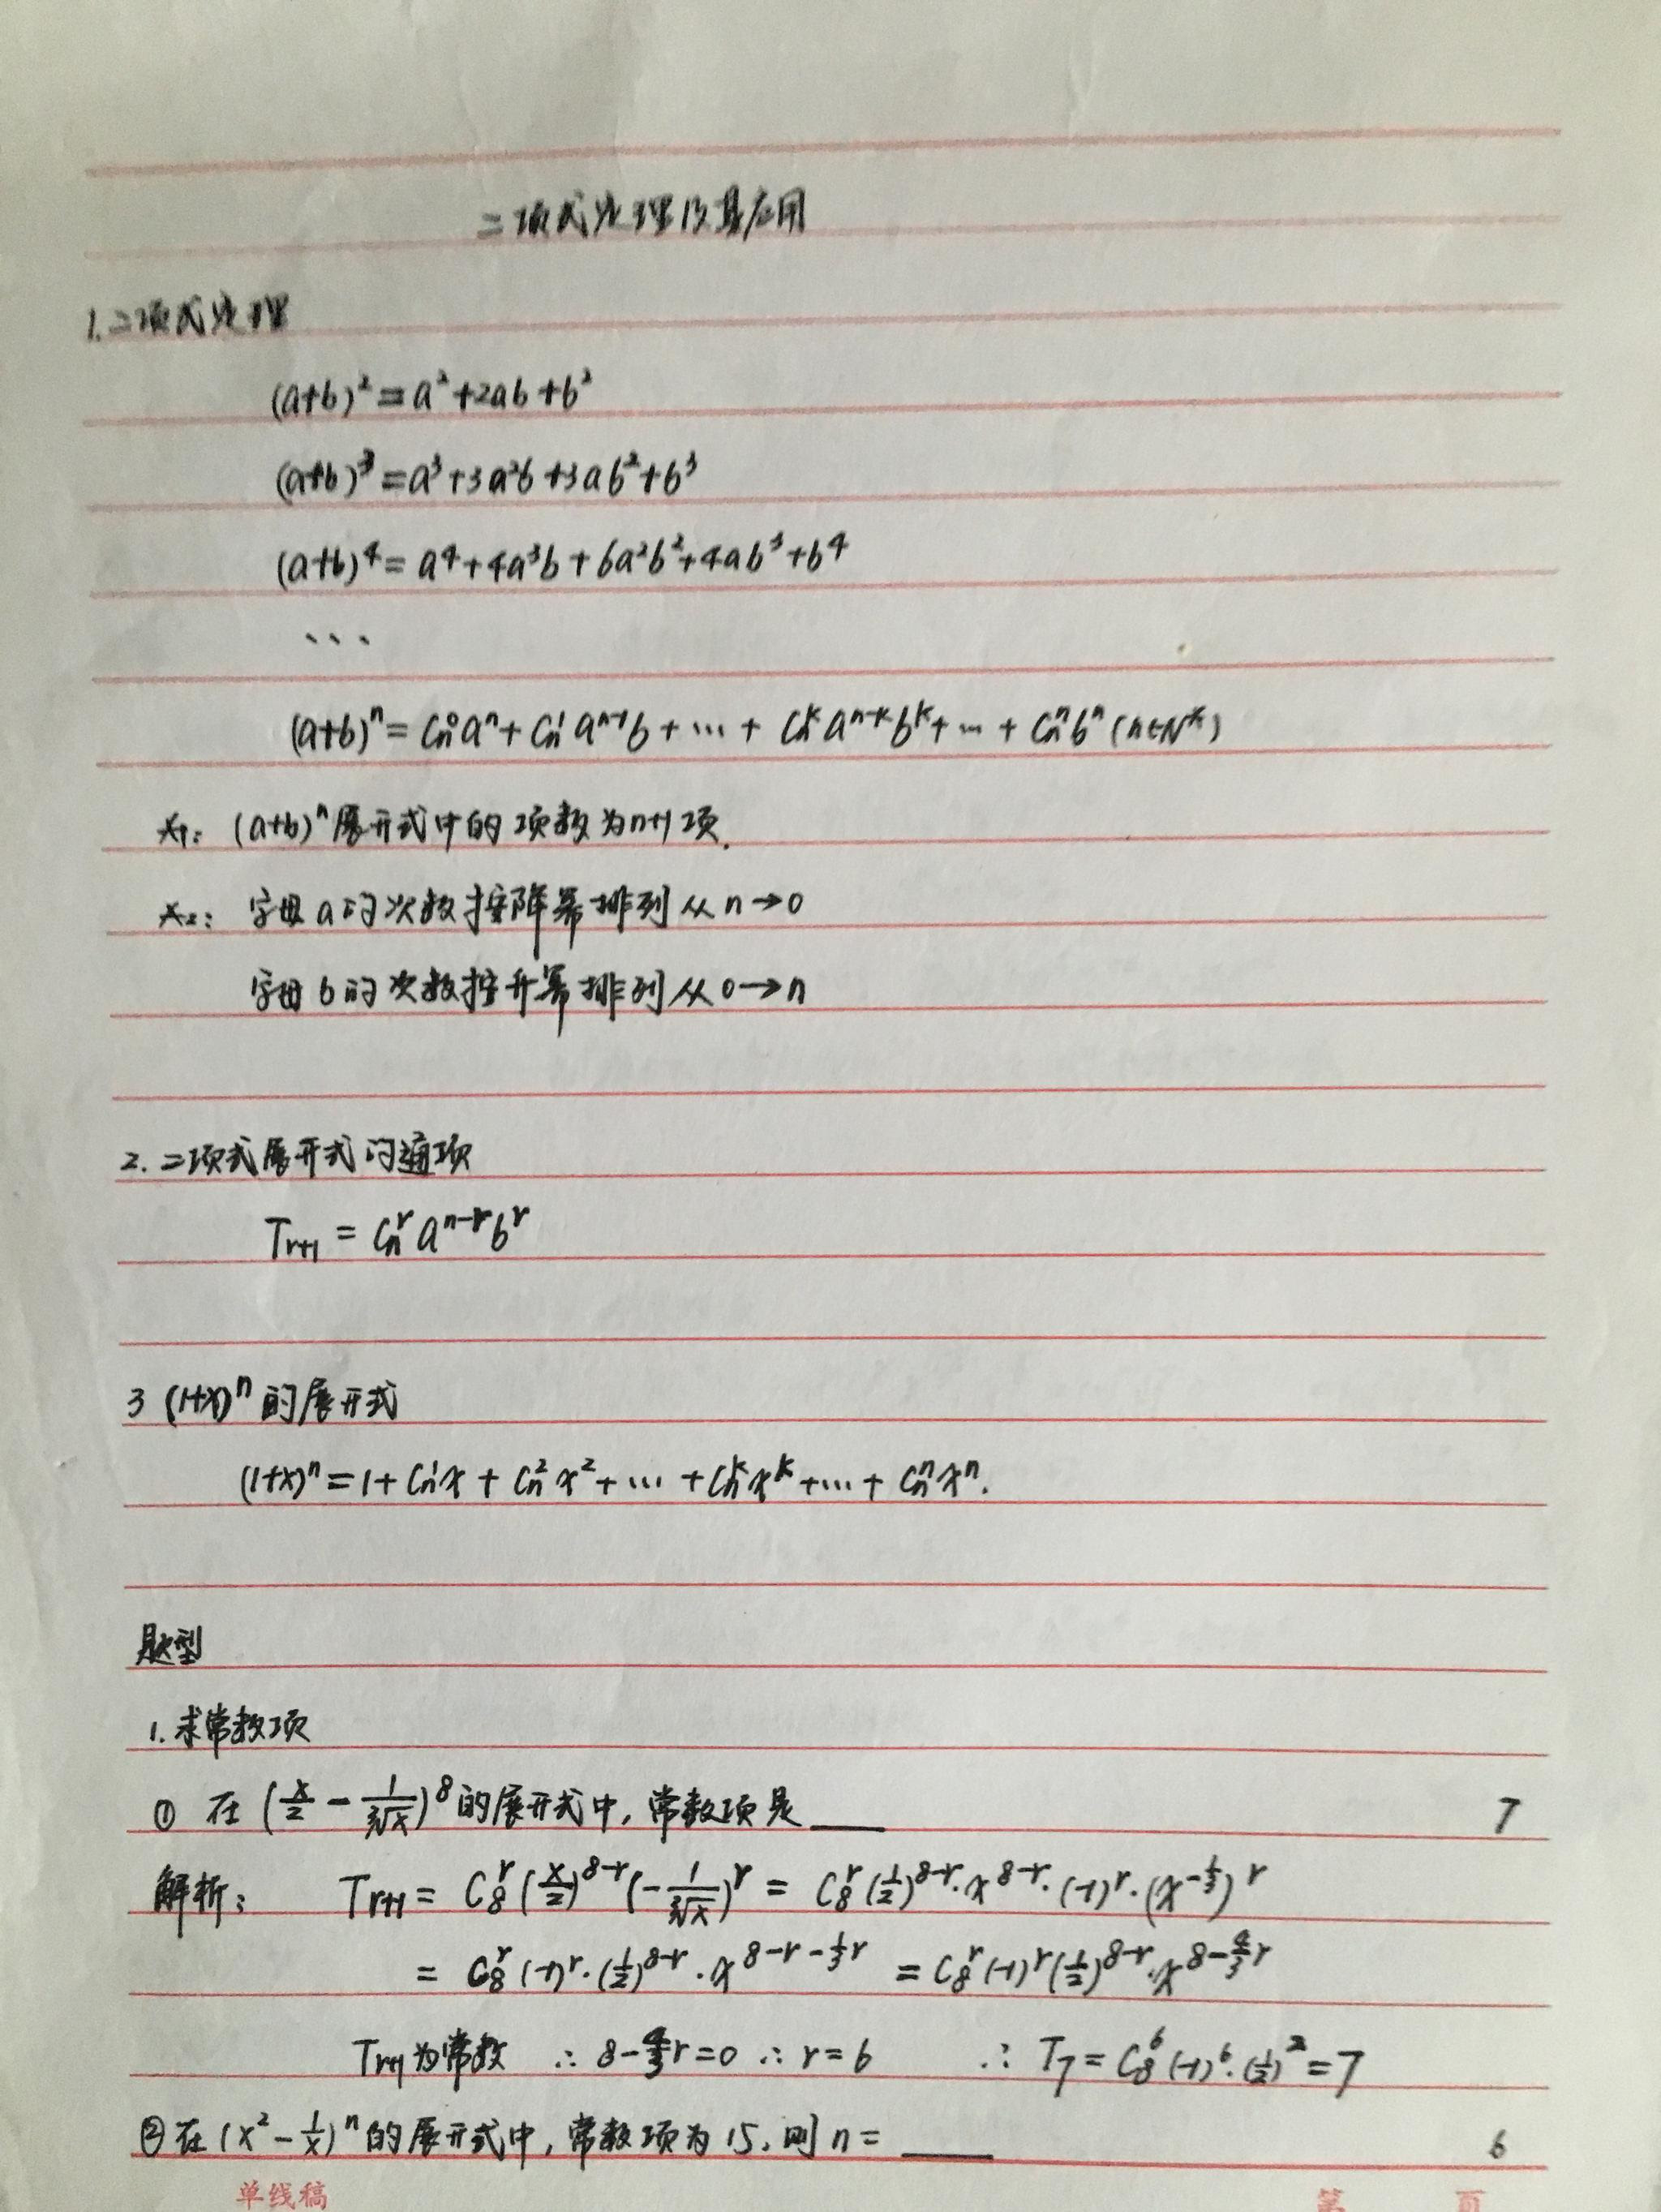 二项式定理及其应用
1.二项式定理
(a+b)²=a²+2ab+b²
(a+b)³=a³+3a²b+3ab²+b³
(a+b)⁴=a⁴+4a³b+6a²b²+4ab³+b⁴
、、、
(a+b)ⁿ=Cₙ⁰aⁿ+Cₙ¹aⁿ⁻¹b+…+Cₙᵏaⁿ⁻ᵏbᵏ+…+Cₙⁿbⁿ(n∈N*)
*1: (a+b)ⁿ展开式中的项数为n+1项.
*2: 字母a的次数按降幂排列从n→0
字母b的次数按升幂排列从0→n
2.二项式展开式的通项
Tᵣ₊₁=Cₙʳaⁿ⁻ʳbʳ
3 (1+x)ⁿ的展开式
(1+x)ⁿ=1+Cₙ¹x+Cₙ²x²+…+Cₙᵏxᵏ+…+Cₙⁿxⁿ.
题型
1.求常数项
① 在(x/2-1/∛x)⁸的展开式中,常数项是___ 7
解析: Tᵣ₊₁=C₈ʳ(x/2)⁸⁻ʳ(-1/∛x)ʳ=C₈ʳ(1/2)⁸⁻ʳ·x⁸⁻ʳ·(-1)ʳ·(x^(-1/3))ʳ
=C₈ʳ(-1)ʳ·(1/2)⁸⁻ʳ·x^(8-r-1/3r)=C₈ʳ(-1)ʳ(1/2)⁸⁻ʳ·x^(8-4/3r)
Tᵣ₊₁为常数 ∴8-4/3r=0 ∴r=6 ∴T₇=C₈⁶(-1)⁶·(1/2)²=7
②在(x²-1/x)ⁿ的展开式中,常数项为15,则n=____ 6
单线稿 第 页